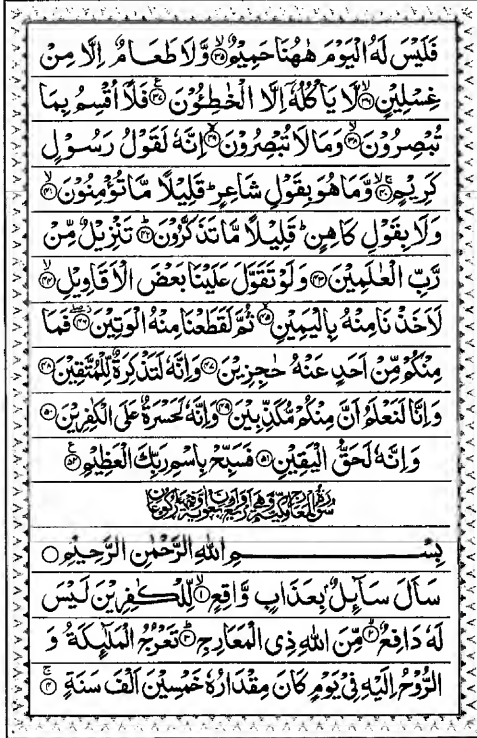 فَلَيْسَ لَهُ الْيَوْمَ هٰهُنَا حَمِيْمٌ ۙ‏﴿۳۵﴾ وَّلَا طَعَامٌ اِلَّا مِنْ
غِسْلِيْنٍ ۙ‏﴿۳۶﴾ لَّا يَاْكُلُهٗۤ اِلَّا الْخٰطِـُٔوْنَ ‏﴿۳۷﴾ فَلَاۤ اُقْسِمُ بِمَا
تُبْصِرُوْنَ ۙ‏﴿۳۸﴾ وَمَا لَا تُبْصِرُوْنَ ۙ‏﴿۳۹﴾ اِنَّهٗ لَقَوْلُ رَسُوْلٍ
كَرِيْمٍ ‏﴿۴۰﴾ وَّمَا هُوَ بِقَوْلِ شَاعِرٍ ؕ قَلِيْلًا مَّا تُؤْمِنُوْنَ ۙ‏﴿۴۱﴾
وَلَا بِقَوْلِ كَاهِنٍ ؕ قَلِيْلًا مَّا تَذَكَّرُوْنَ ؕ‏﴿۴۲﴾ تَنْزِيْلٌ مِّنْ
رَّبِّ الْعٰلَمِيْنَ ‏﴿۴۳﴾ وَلَوْ تَقَوَّلَ عَلَيْنَا بَعْضَ الْاَقَاوِيْلِ ۙ‏﴿۴۴﴾
لَاَخَذْنَا مِنْهُ بِالْيَمِيْنِ ۙ‏﴿۴۵﴾ ثُمَّ لَقَطَعْنَا مِنْهُ الْوَتِيْنَ ‏﴿۴۶﴾ فَمَا
مِنْكُمْ مِّنْ اَحَدٍ عَنْهُ حٰجِزِيْنَ ‏﴿۴۷﴾ وَاِنَّهٗ لَتَذْكِرَةٌ لِّلْمُتَّقِيْنَ ‏﴿۴۸﴾
وَاِنَّا لَنَعْلَمُ اَنَّ مِنْكُمْ مُّكَذِّبِيْنَ ‏﴿۴۹﴾ وَاِنَّهٗ لَحَسْرَةٌ عَلَى الْكٰفِرِيْنَ ‏﴿۵۰﴾
وَاِنَّهٗ لَحَقُّ الْيَقِيْنِ ‏﴿۵۱﴾ فَسَبِّحْ بِاسْمِ رَبِّكَ الْعَظِيْمِ ‏﴿۵۲﴾
بِسْمِ اللّٰهِ الرَّحْمٰنِ الرَّحِيْمِ ○
سَاَلَ سَآئِلٌۢ بِعَذَابٍ وَّاقِعٍ ۙ‏﴿۱﴾ لِّلْكٰفِرِيْنَ لَيْسَ
لَهٗ دَافِعٌ ۙ‏﴿۲﴾ مِّنَ اللّٰهِ ذِى الْمَعَارِجِ ؕ‏﴿۳﴾ تَعْرُجُ الْمَلٰٓئِكَةُ وَ
الرُّوْحُ اِلَيْهِ فِىْ يَوْمٍ كَانَ مِقْدَارُهٗ خَمْسِيْنَ اَلْفَ سَنَةٍ ۚ‏﴿۴﴾